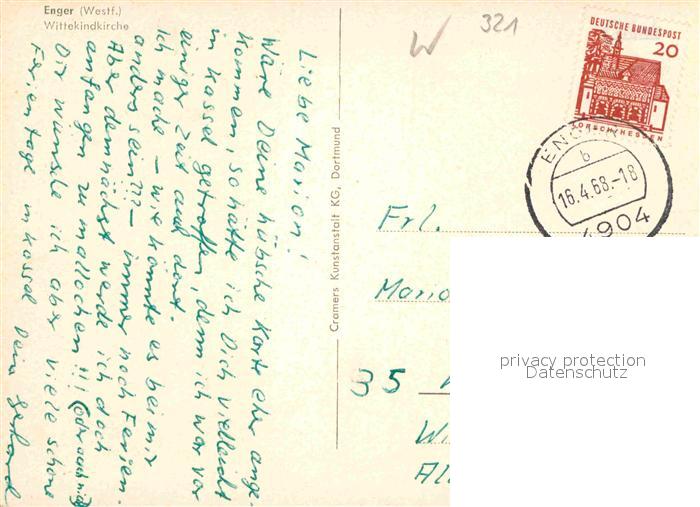 Enger (Westf.)
Wittekindkirche
Liebe Marion!
Wäre Deine hübsche Karte eher ange-
kommen, so hätte ich Dich vielleicht
in Kassel getroffen, denn ich war vor
einiger Zeit auf dort.
Ich mache – wie könnte es bei mir
anders sein??? – immer noch Ferien.
Aber demnächst werde ich doch
anfangen zu malochen!!! (oder auch nicht)
Dir wünsche ich aber viele schöne
Ferientage in Kassel Dein Gerhard
Cramers Kunstanstalt KG, Dortmund
W 321
DEUTSCHE BUNDESPOST
20
LORSCH/HESSEN
ENGER
b
16.4.68.-18
4904
Frl.
Mario
35
Wi
Al
privacy protection
Datenschutz